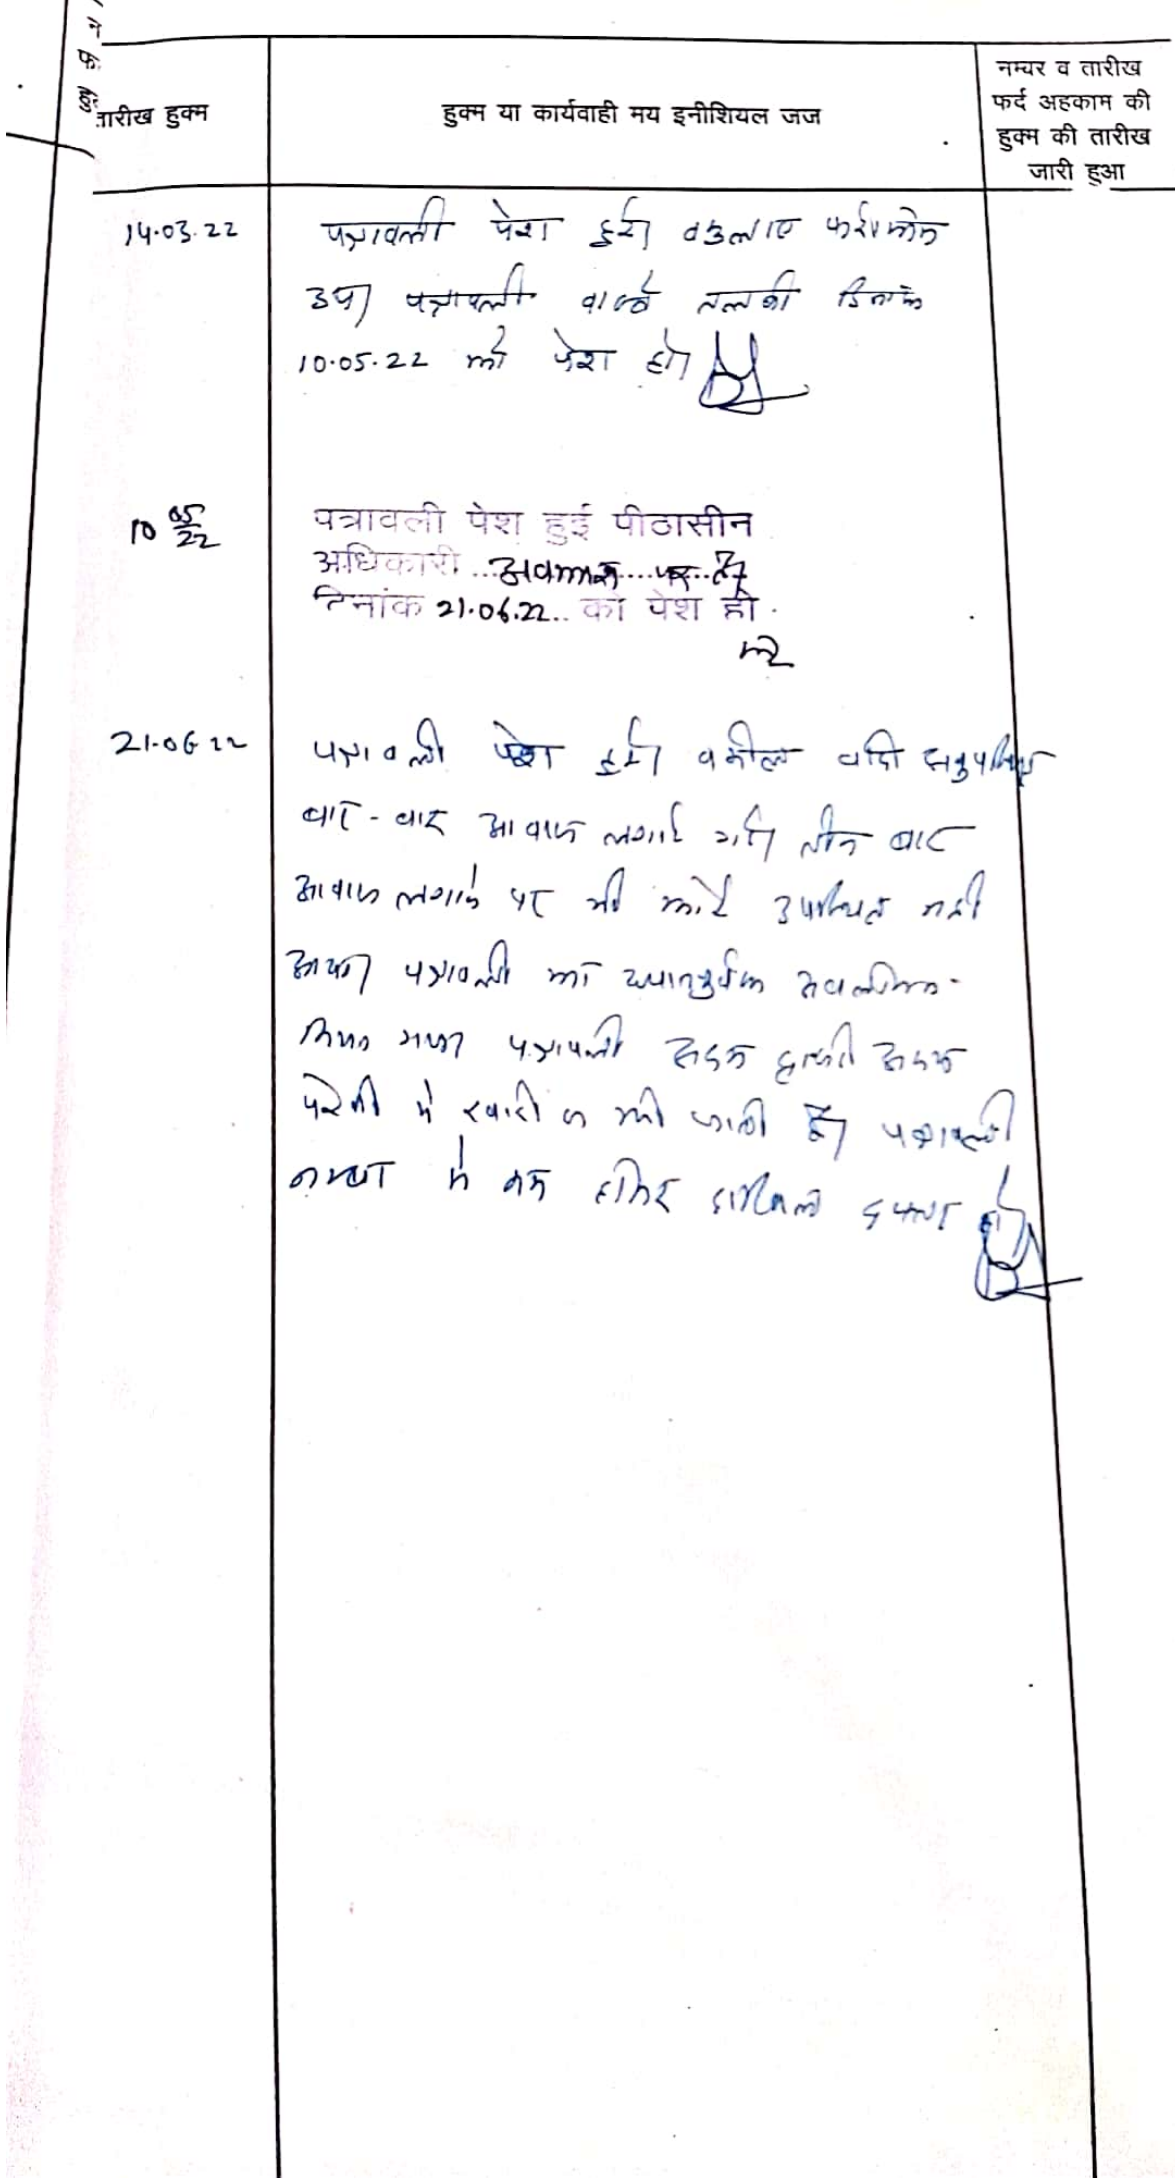 ने
फ.
हु:
तारीख हुक्म
हुक्म या कार्यवाही मय इनीशियल जज
नम्बर व तारीख
फर्द अहकाम की
हुक्म की तारीख
जारी हुआ
14.03.22
पत्रावली पेश हुई। वकुलाए फरीकेन
उप। पत्रावली वास्ते तलबी दिनांक
10.05.22 को पेश हो।
10 05/22
पत्रावली पेश हुई पीठासीन
अधिकारी ...अवकाश....पर..है।
दिनांक 21.06.22.. को पेश हो.
21.06 22
पत्रावली पेश हुई। वकील वादी अनुपस्थित
बार-बार आवाज लगाई गई। तीन बार
आवाज लगाने पर भी कोई उपस्थित नही
आया। पत्रावली का ध्यानपूर्वक अवलोकन
किया गया। पत्रावली अदम हाजरी अदम
पैरवी मे खारीज की जाती है। पत्रावली
नम्बर से कम होकर दाखिल दफ्तर हो।